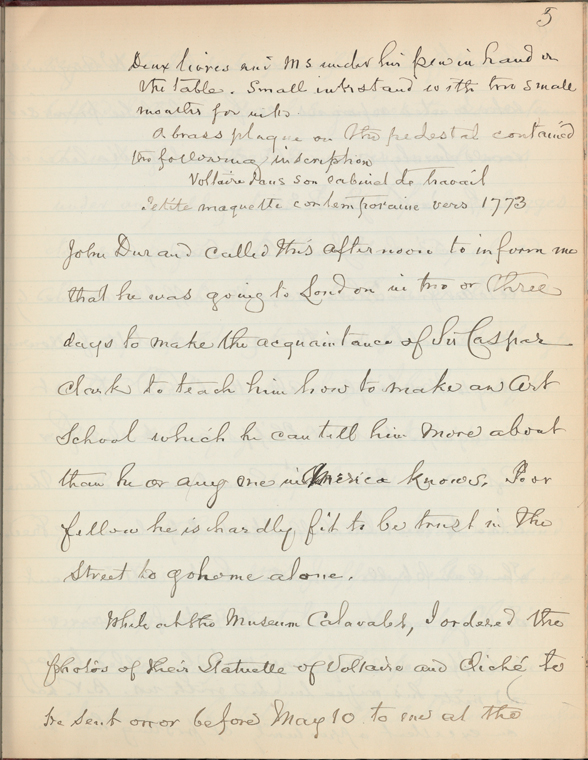 5
Deux livres and Ms under his pen in hand on
the table. Small inkstand with two small
mouths for inks
A brass plaque on the pedestal contained
the following inscription
Voltaire dans son cabinet de travail
Petite maquette contemporaine vers 1773
John Durand called this afternoon to inform me
that he was going to London in two or three
days to make the acquaintance of Sir Caspar
Clark to teach him how to make an Art
School which he can tell him more about
than he or any one in America knows. Poor
fellow he is hardly fit to be trust in the
Street to go home alone.
While at the Museum Calavalet, I ordered the
photos of their Statuette of Voltaire and Cliché to
be sent on or before May 10 to me at the